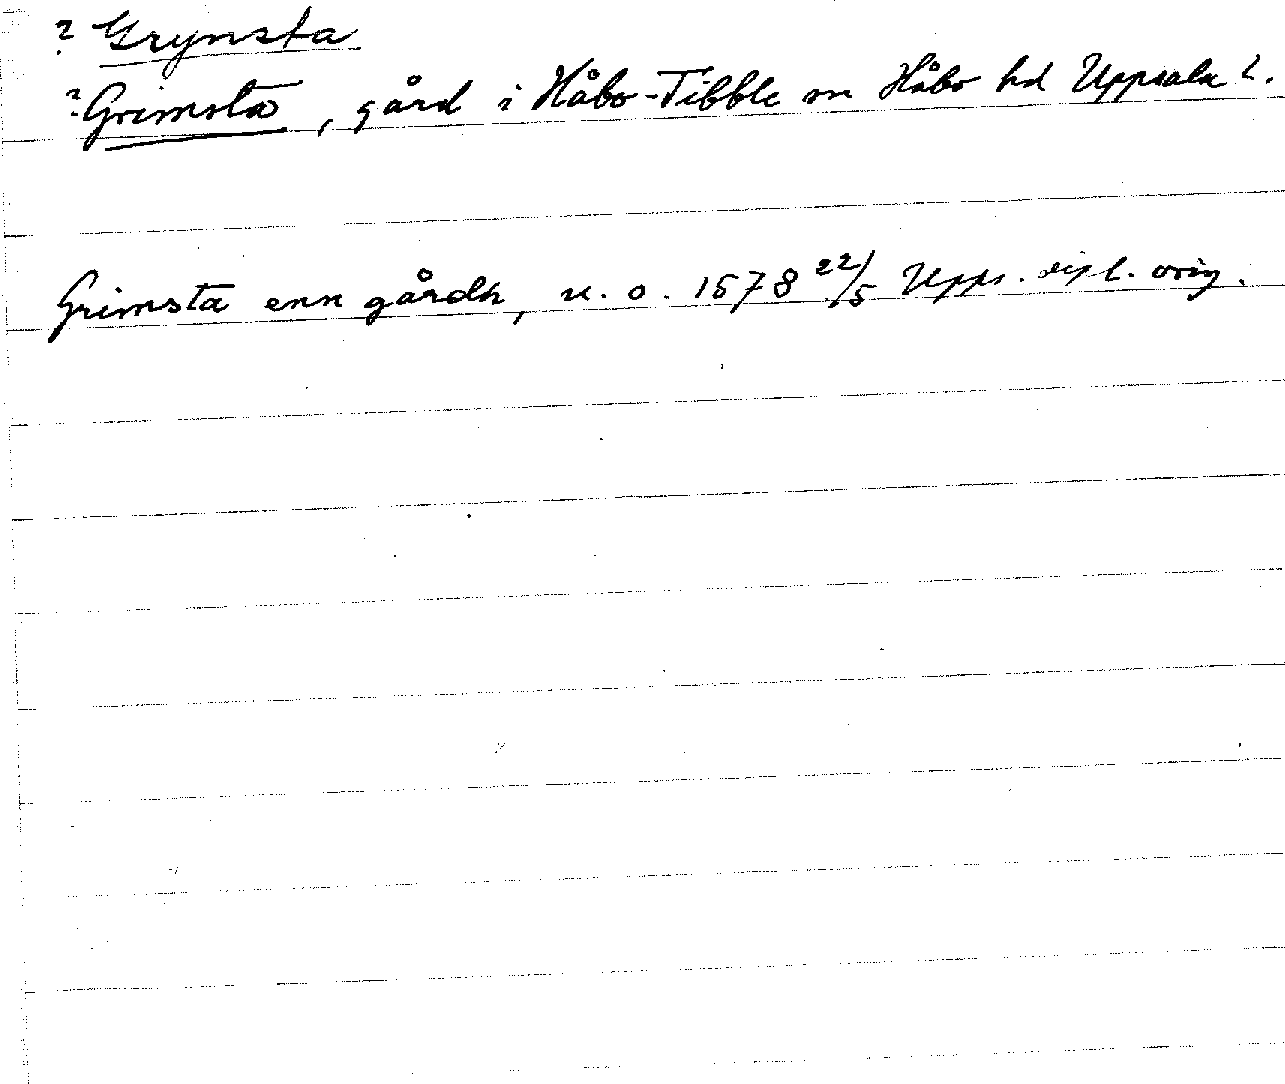 ? Grynsta
? Grimsta, gård i Håbo-Tibble sn Håbo hd Uppsala l.
Grimsta enn gårdh, u. o. 1578 22/5 Upps. dipl. orig.